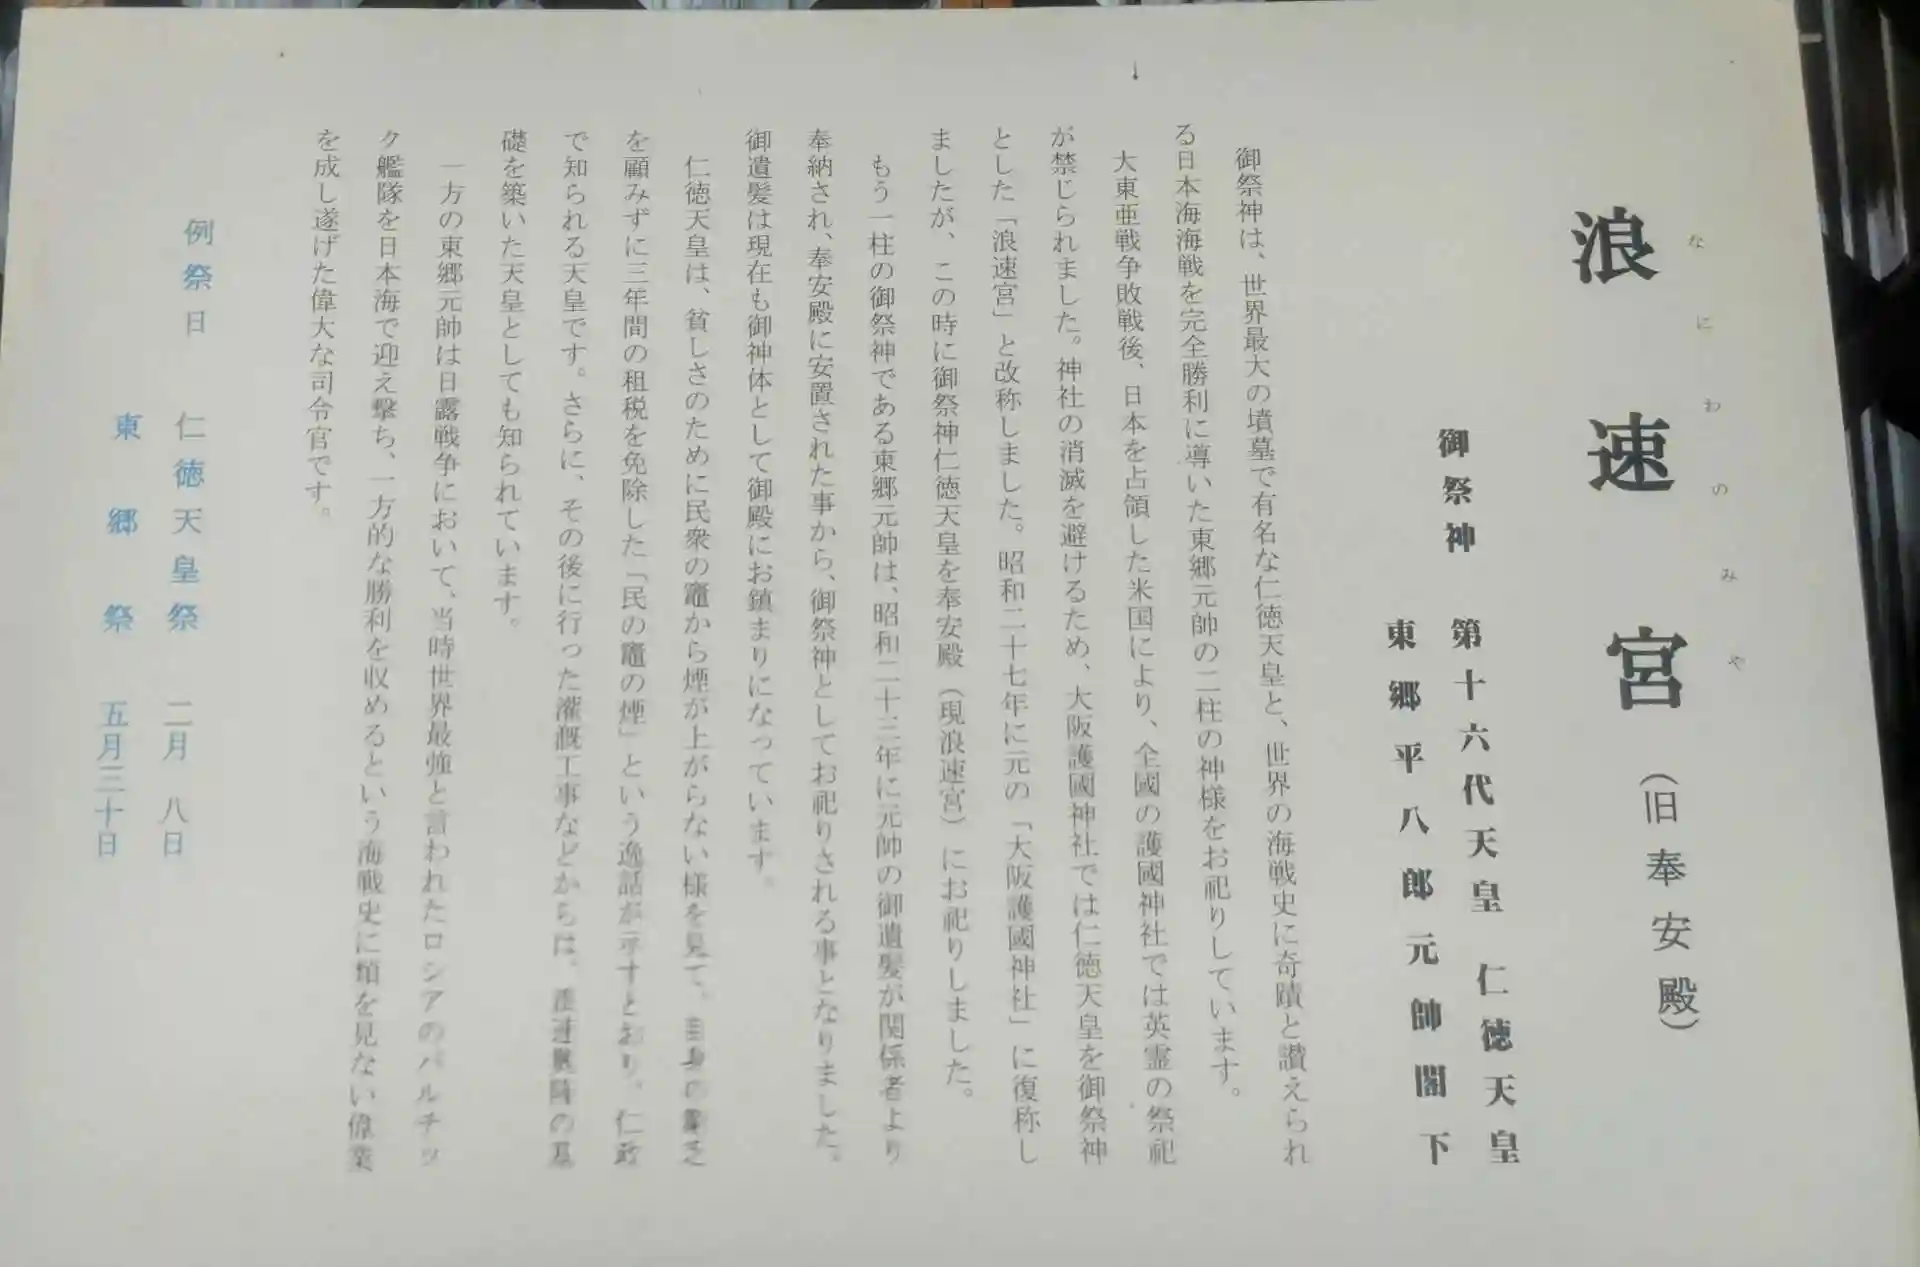 浪速宮(旧奉安殿)
なにわのみや
御祭神 第十六代天皇 仁徳天皇
東郷平八郎元帥閣下
御祭神は、世界最大の墳墓で有名な仁徳天皇と、世界の海戦史に奇蹟と讃えられ
る日本海海戦を完全勝利に導いた東郷元帥の二柱の神様をお祀りしています。
大東亜戦争敗戦後、日本を占領した米国により、全國の護國神社では英霊の祭祀
が禁じられました。神社の消滅を避けるため、大阪護國神社では仁徳天皇を御祭神
とした「浪速宮」と改称しました。昭和二十七年に元の「大阪護國神社」に復称し
ましたが、この時に御祭神仁徳天皇を奉安殿(現浪速宮)にお祀りしました。
もう一柱の御祭神である東郷元帥は、昭和二十三年に元帥の御遺髪が関係者より
奉納され、奉安殿に安置された事から、御祭神としてお祀りされる事となりました。
御遺髪は現在も御神体として御殿にお鎮まりになっています。
仁徳天皇は、貧しさのために民衆の竈から煙が上がらない様を見て、自身の窮乏
を顧みずに三年間の租税を免除した「民の竈の煙」という逸話が示すとおり、仁政
で知られる天皇です。さらに、その後に行った灌漑工事などからは、の基
礎を築いた天皇としても知られています。
一方の東郷元帥は日露戦争において、当時世界最強と言われたロシアのバルチッ
ク艦隊を日本海で迎え撃ち、一方的な勝利を収めるという海戦史に類を見ない偉業
を成し遂げた偉大な司令官です。
例祭日 仁徳天皇祭 二月 八日
東郷祭 五月三十日